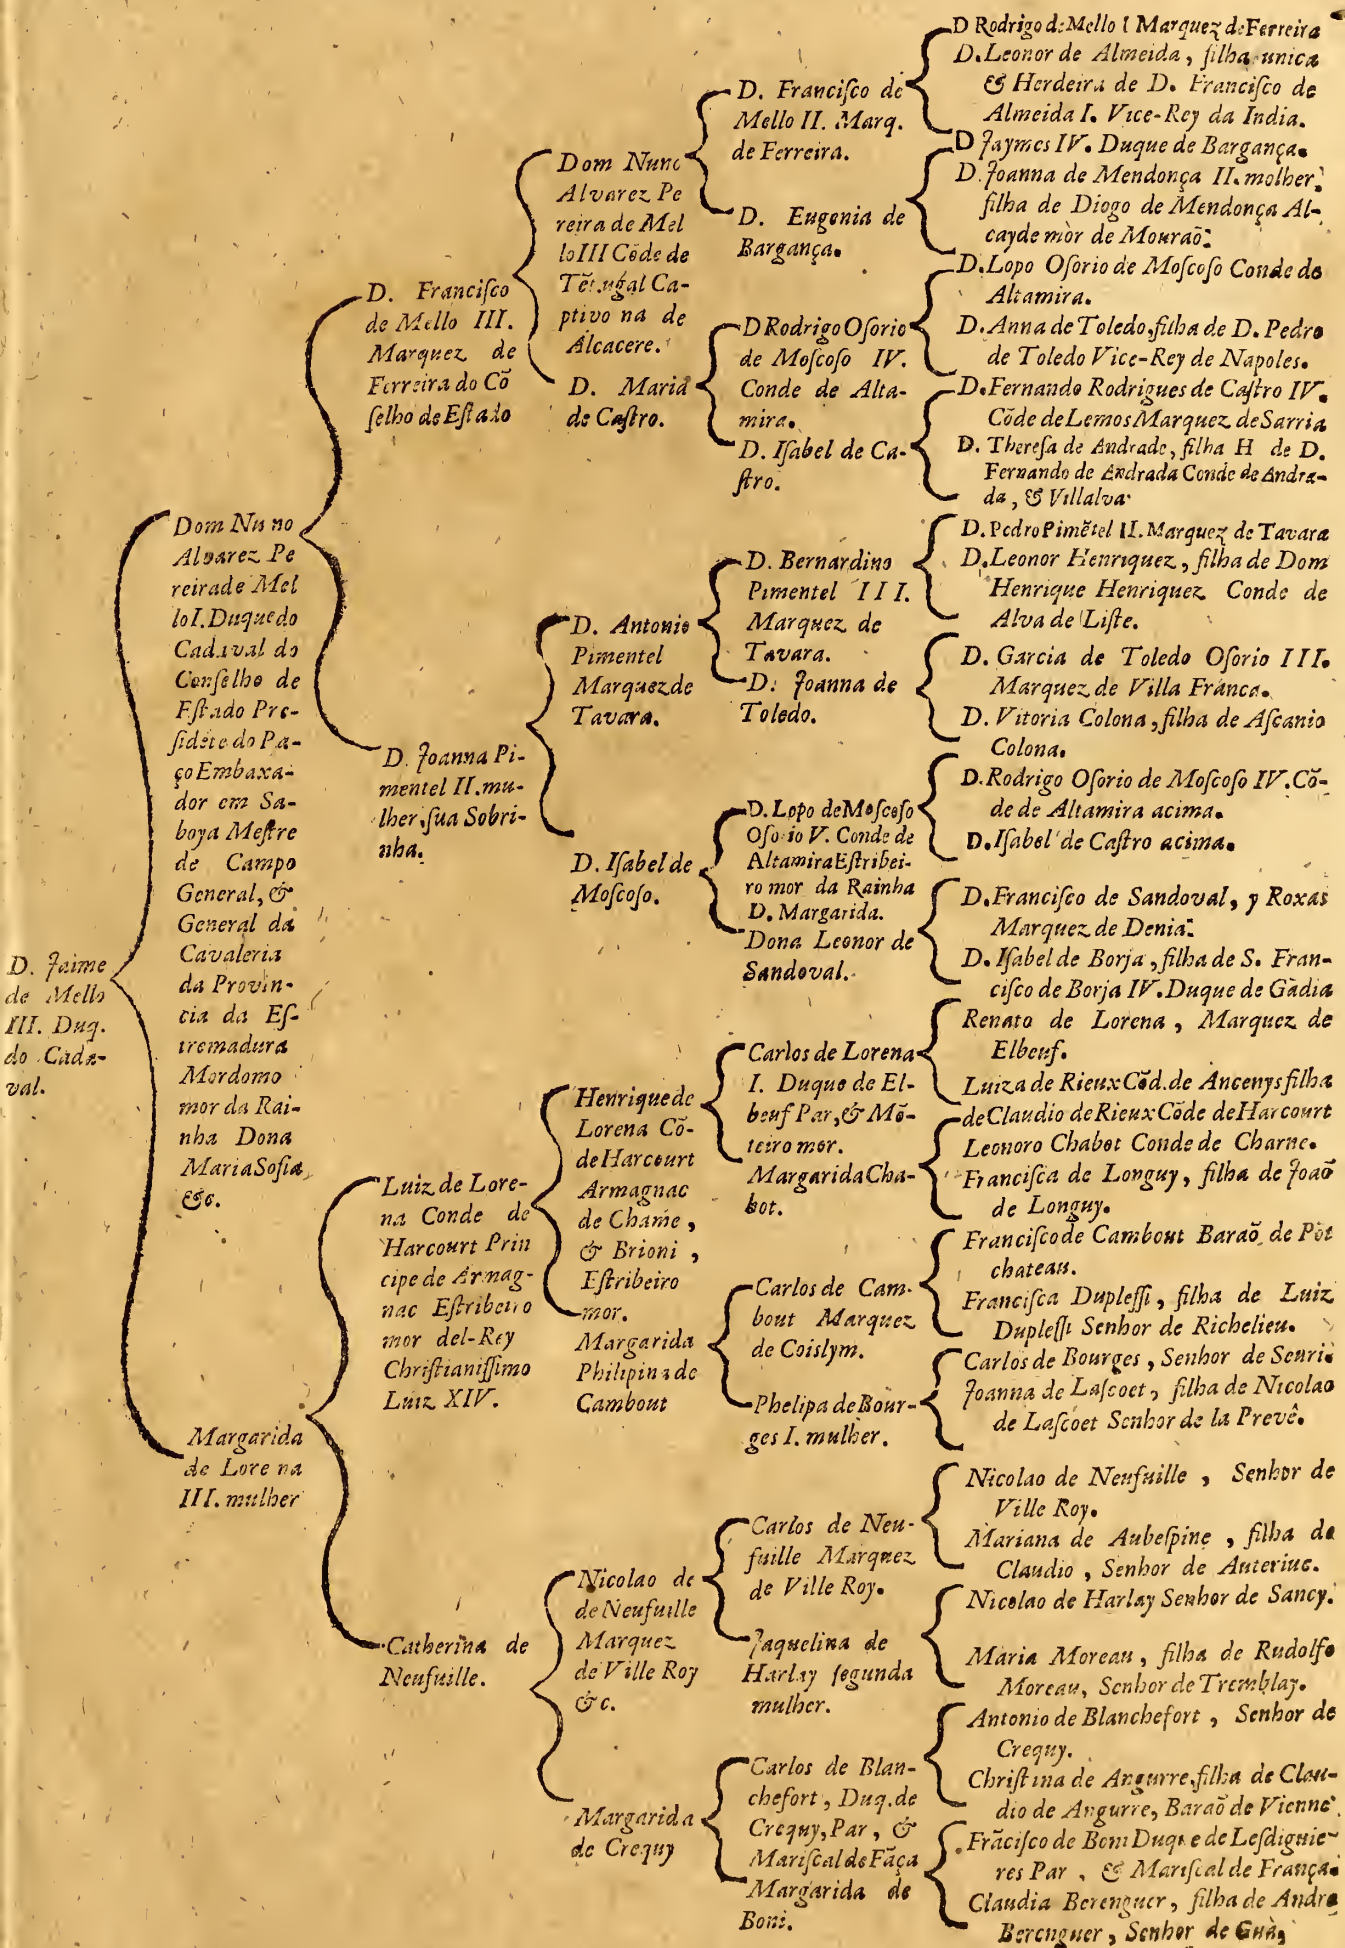 D. Jaime
de Mello
III. Duq.
do Cada-
val.
Dom Nuno
Alvarez Pe
reira de Mel
lo I. Duque do
Cadaval do
Conselho de
Estado Pre-
sidẽte do Pa-
ço Embaxa-
dor em Sa-
boya Mestre
de Campo
General, &
General da
Cavaleria
da Provin-
cia da Es-
tremadura
Mordomo
mor da Rai-
nha Dona
Maria Sofia,
&c.
Margarida
de Lorena
III. mulher
D. Francisco
de Mello III.
Marquez de
Ferreira do Cõ
selho de Estado
D. Joanna Pi-
mentel II. mu-
lher, sua Sobri-
nha.
Luiz de Lore-
na Conde de
Harcourt Prin
cipe de Armag-
nac Estribeiro
mor del-Rey
Christianissimo
Luiz XIV.
Catherina de
Neufuille.
Dom Nuno
Alvarez Pe
reira de Mel
lo III Cõde de
Tẽtugal Ca-
ptivo na de
Alcacere.
D. Maria
de Castro.
D. Antonio
Pimentel
Marquez de
Tavara.
D. Isabel de
Moscoso.
Henrique de
Lorena Cõ-
de Harcourt
Armagnac
de Charne,
& Brioni,
Estribeiro
mor.
Margarida
Philipina de
Cambout
Nicolao de
de Neufuille
Marquez
de Ville Roy
&c.
Margarida
de Crequy
D. Francisco de
Mello II. Marq.
de Ferreira.
D. Eugenia de
Bargança.
D Rodrigo Osorio
de Moscoso IV.
Conde de Alta-
mira.
D. Isabel de Ca-
stro.
D. Bernardino
Pimentel III.
Marquez de
Tavara.
D. Joanna de
Toledo.
D. Lopo de Moscoso
Osorio V. Conde de
Altamira Estribei-
ro mor da Rainha
D. Margarida.
Dona Leonor de
Sandoval.
Carlos de Lorena
I. Duque de El-
beuf Par, & Mõ-
teiro mor.
Margarida Cha-
bot.
Carlos de Cam-
bout Marquez
de Coislym.
Phelipa de Bour-
ges I. mulher.
Carlos de Neu-
fuille Marquez
de Ville Roy.
Jaquelina de
Harlay segunda
mulher.
Carlos de Blan-
chefort, Duq. de
Crequy, Par, &
Mariscal de Fãça
Margarida de
Boni.
D Rodrigo de Mello I Marquez de Ferreira
D. Leonor de Almeida, filha unica
& Herdeira de D. Francisco de
Almeida I. Vice-Rey da India.
D Jaymes IV. Duque de Bargança.
D. Joanna de Mendonça II. molher,
filha de Diogo de Mendonça Al-
cayde mòr de Mouraõ.
D. Lopo Osorio de Moscoso Conde de
Altamira.
D. Anna de Toledo, filha de D. Pedro
de Toledo Vice-Rey de Napoles.
D. Fernando Rodrigues de Castro IV.
Cõde de Lemos Marquez de Sarria
D. Theresa de Andrade, filha H de D.
Fernando de Andrada Conde de Andra-
da, & Villalva
D. Pedro Pimẽtel II. Marquez de Tavara
D. Leonor Henriquez, filha de Dom
Henrique Henriquez Conde de
Alva de Liste.
D. Garcia de Toledo Osorio III.
Marquez de Villa Franca.
D. Vitoria Colona, filha de Ascanio
Colona.
D. Rodrigo Osorio de Moscoso IV. Cõ-
de de Altamira acima.
D. Isabel de Castro acima.
D. Francisco de Sandoval, y Roxas
Marquez de Denia.
D. Isabel de Borja, filha de S. Fran-
cisco de Borja IV. Duque de Gãdia
Renato de Lorena, Marquez de
Elbeuf.
Luiza de Rieux Cõd. de Ancenys filha
de Claudio de Rieux Cõde de Harcourt
Leonoro Chabot Conde de Charne.
Francisca de Longuy, filha de Joaõ
de Longuy.
Francisco de Cambout Baraõ de Põt
chateau.
Francisca Duplessi, filha de Luiz
Duplessi Senhor de Richelieu.
Carlos de Bourges, Senhor de Seuri.
Joanna de Lascoet, filha de Nicolao
de Lascoet Senhor de la Prevê.
Nicolao de Neufuille, Senhor de
Ville Roy.
Mariana de Aubespine, filha de
Claudio, Senhor de Auteriue.
Nicolao de Harlay Senhor de Sancy.
Maria Moreau, filha de Rudolfo
Moreau, Senhor de Tremblay.
Antonio de Blanchefort, Senhor de
Crequy.
Christina de Angurre, filha de Clau-
dio de Angurre, Baraõ de Vienne.
Frãcisco de Boni Duque de Lesdiguie-
res Par, & Mariscal de França.
Claudia Berenguer, filha de Andre
Berenguer, Senhor de Guà,